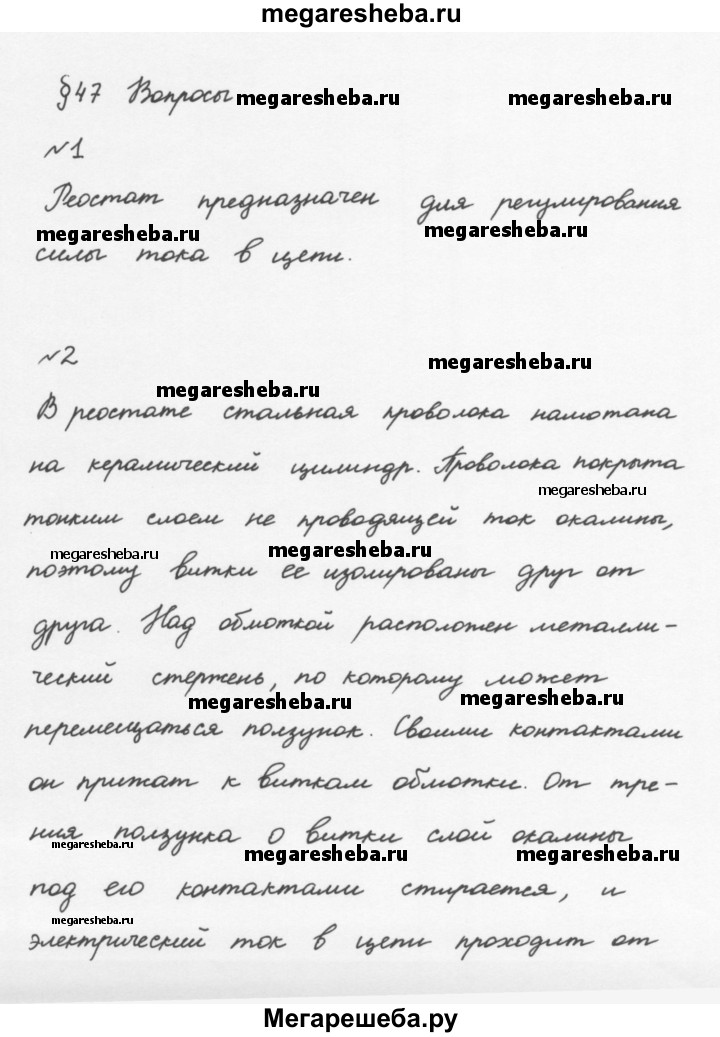 megaresheba.ru
§47 Вопросы megaresheba.ru megaresheba.ru
№1
Реостат предназначен для регулирования
megaresheba.ru megaresheba.ru
силы тока в цепи.
№2 megaresheba.ru
megaresheba.ru
В реостате стальная проволока намотана
на керамический цилиндр. Проволока покрыта
megaresheba.ru
тонким слоем не проводящей ток окалины,
megaresheba.ru megaresheba.ru
поэтому витки ее изолированы друг от
друга. Над обмоткой расположен металли-
ческий стержень, по которому может
megaresheba.ru megaresheba.ru
перемещаться ползунок. Своими контактами
он прижат к виткам обмотки. От тре-
ния ползунка о витки слой окалины
megaresheba.ru megaresheba.ru megaresheba.ru
под его контактами стирается, и
megaresheba.ru
электрический ток в цепи проходит от
Мегарешеба.ру